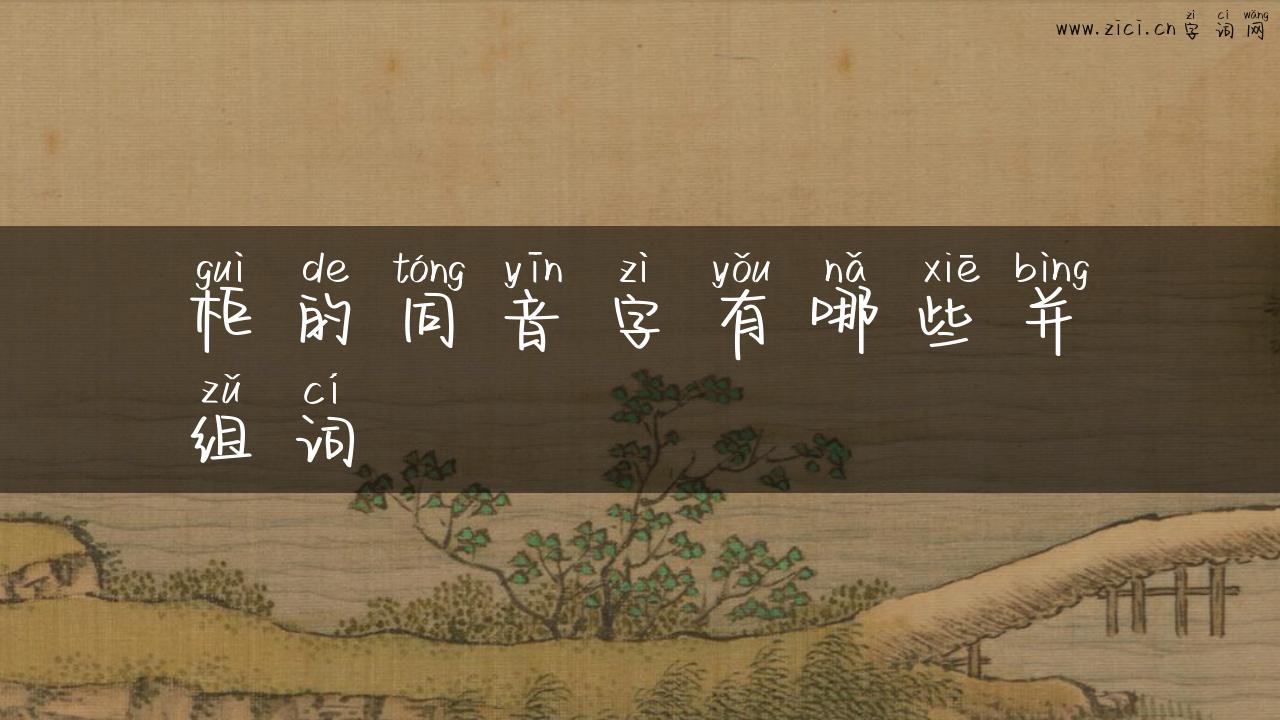 zì cí wǎng
www.zici.cn 字词网
guì de tóng yīn zì yǒu nǎ xiē bìng
柜的同音字有哪些并
zǔ cí
组词